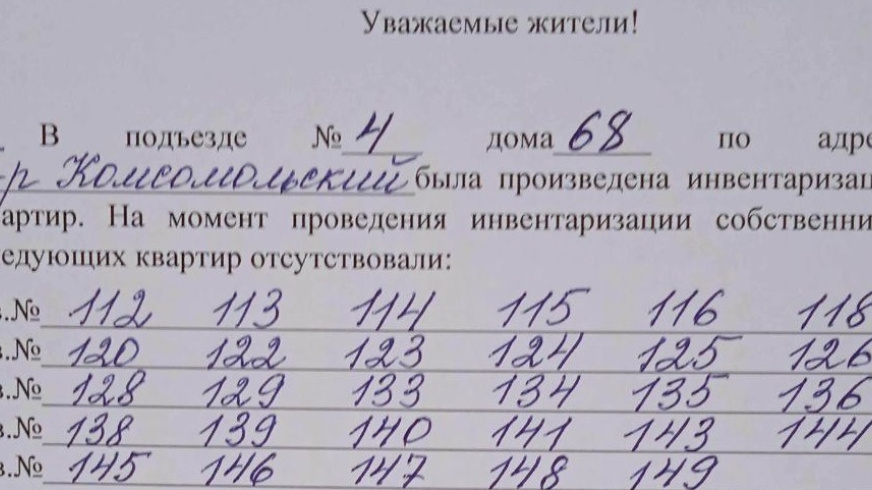 Уважаемые жители!
В подъезде № 4 дома 68 по адре
-р Комсомольский была произведена инвентаризац
артир. На момент проведения инвентаризации собственни
едующих квартир отсутствовали:
в.№ 112 113 114 115 116 118
в.№ 120 122 123 124 125 126
в.№ 128 129 133 134 135 136
в.№ 138 139 140 141 143 144
в.№ 145 146 147 148 149